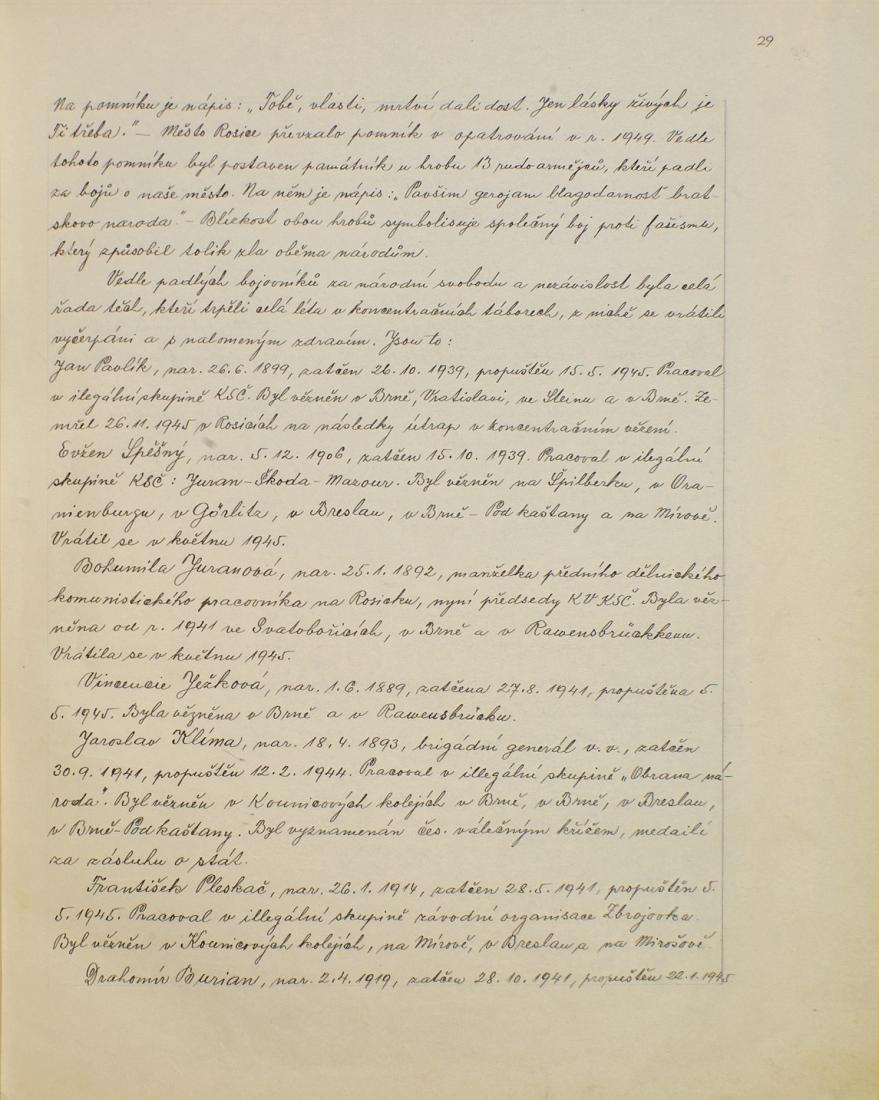 29
Na pomníku je nápis: „Tobě, vlasti, mrtví dali dost. Jen lásky živých je
Ti třeba." – Město Rosice převzalo pomník v opatrování v r. 1949. Vedle
tohoto pomníku byl postaven památník u hrobu 13 rudoarmějců, kteří padli
za bojů o naše město. Na něm je nápis: „Pavšim gerojam blagodarnosť brat-
skovo naroda." – Blízkost obou hrobů symbolisuje společný boj proti fašismu,
který způsobil tolik zla oběma národům.
Vedle padlých bojovníků za národní svobodu a nezávislost byla celá
řada těch, kteří trpěli celá léta v koncentračních táborech, z nichž se vrátili
vyčerpáni a s nalomeným zdravím. Jsou to:
Jan Pavlík, nar. 26.6. 1899, zatčen 26.10. 1939, propuštěn 15.5. 1945. Pracoval
v ilegální skupině KSČ. Byl vězněn v Brně, Vratislavi, ve Steinu a v Brně. Ze-
mřel 26.11. 1945 v Rosicích na následky útrap v koncentračním vězení.
Evžen Spěšný, nar. 5.12. 1906, zatčen 15.10. 1939. Pracoval v ilegální
skupině KSČ: Juran – Škoda – Mazour. Byl vězněn na Špilberku, v Ora-
nienburgu, v Görlitz, v Breslau, v Brně – Pod kaštany a na Mírově.
Vrátil se v květnu 1945.
Bohumila Juranová, nar. 25.1. 1892, manželka předního dělnického
komunistického pracovníka na Rosicku, nyní předsedy KV KSČ. Byla věz-
něna od r. 1941 ve Svatobořicích, v Brně a v Rawensbrückkenu.
Vrátila se v květnu 1945.
Vincencie Ježková, nar. 1.6. 1889, zatčena 27.8. 1941, propuštěna 5.
5. 1945. Byla vězněna v Brně a v Rawensbrücku.
Jaroslav Klíma, nar. 18.4. 1893, brigádní generál v.v., zatčen
30.9. 1941, propuštěn 12.2. 1944. Pracoval v illegální skupině „Obrana ná-
roda". Byl vězněn v Kounicových kolejích v Brně, v Brně, v Breslau,
v Brně – Pod kaštany. Byl vyznamenán čes. válečným křížem, medailí
za zásluhu o stát.
František Pleskač, nar. 26.1. 1914, zatčen 28.5. 1941, propuštěn 5.
5. 1945. Pracoval v illegální skupině závodní organisace Zbrojovka.
Byl vězněn v Kounicových kolejích, na Mírově, v Breslau a na Mirošově.
Drahomír Burian, nar. 2.4. 1919, zatčen 28.10. 1941, propuštěn 22.1. 1945